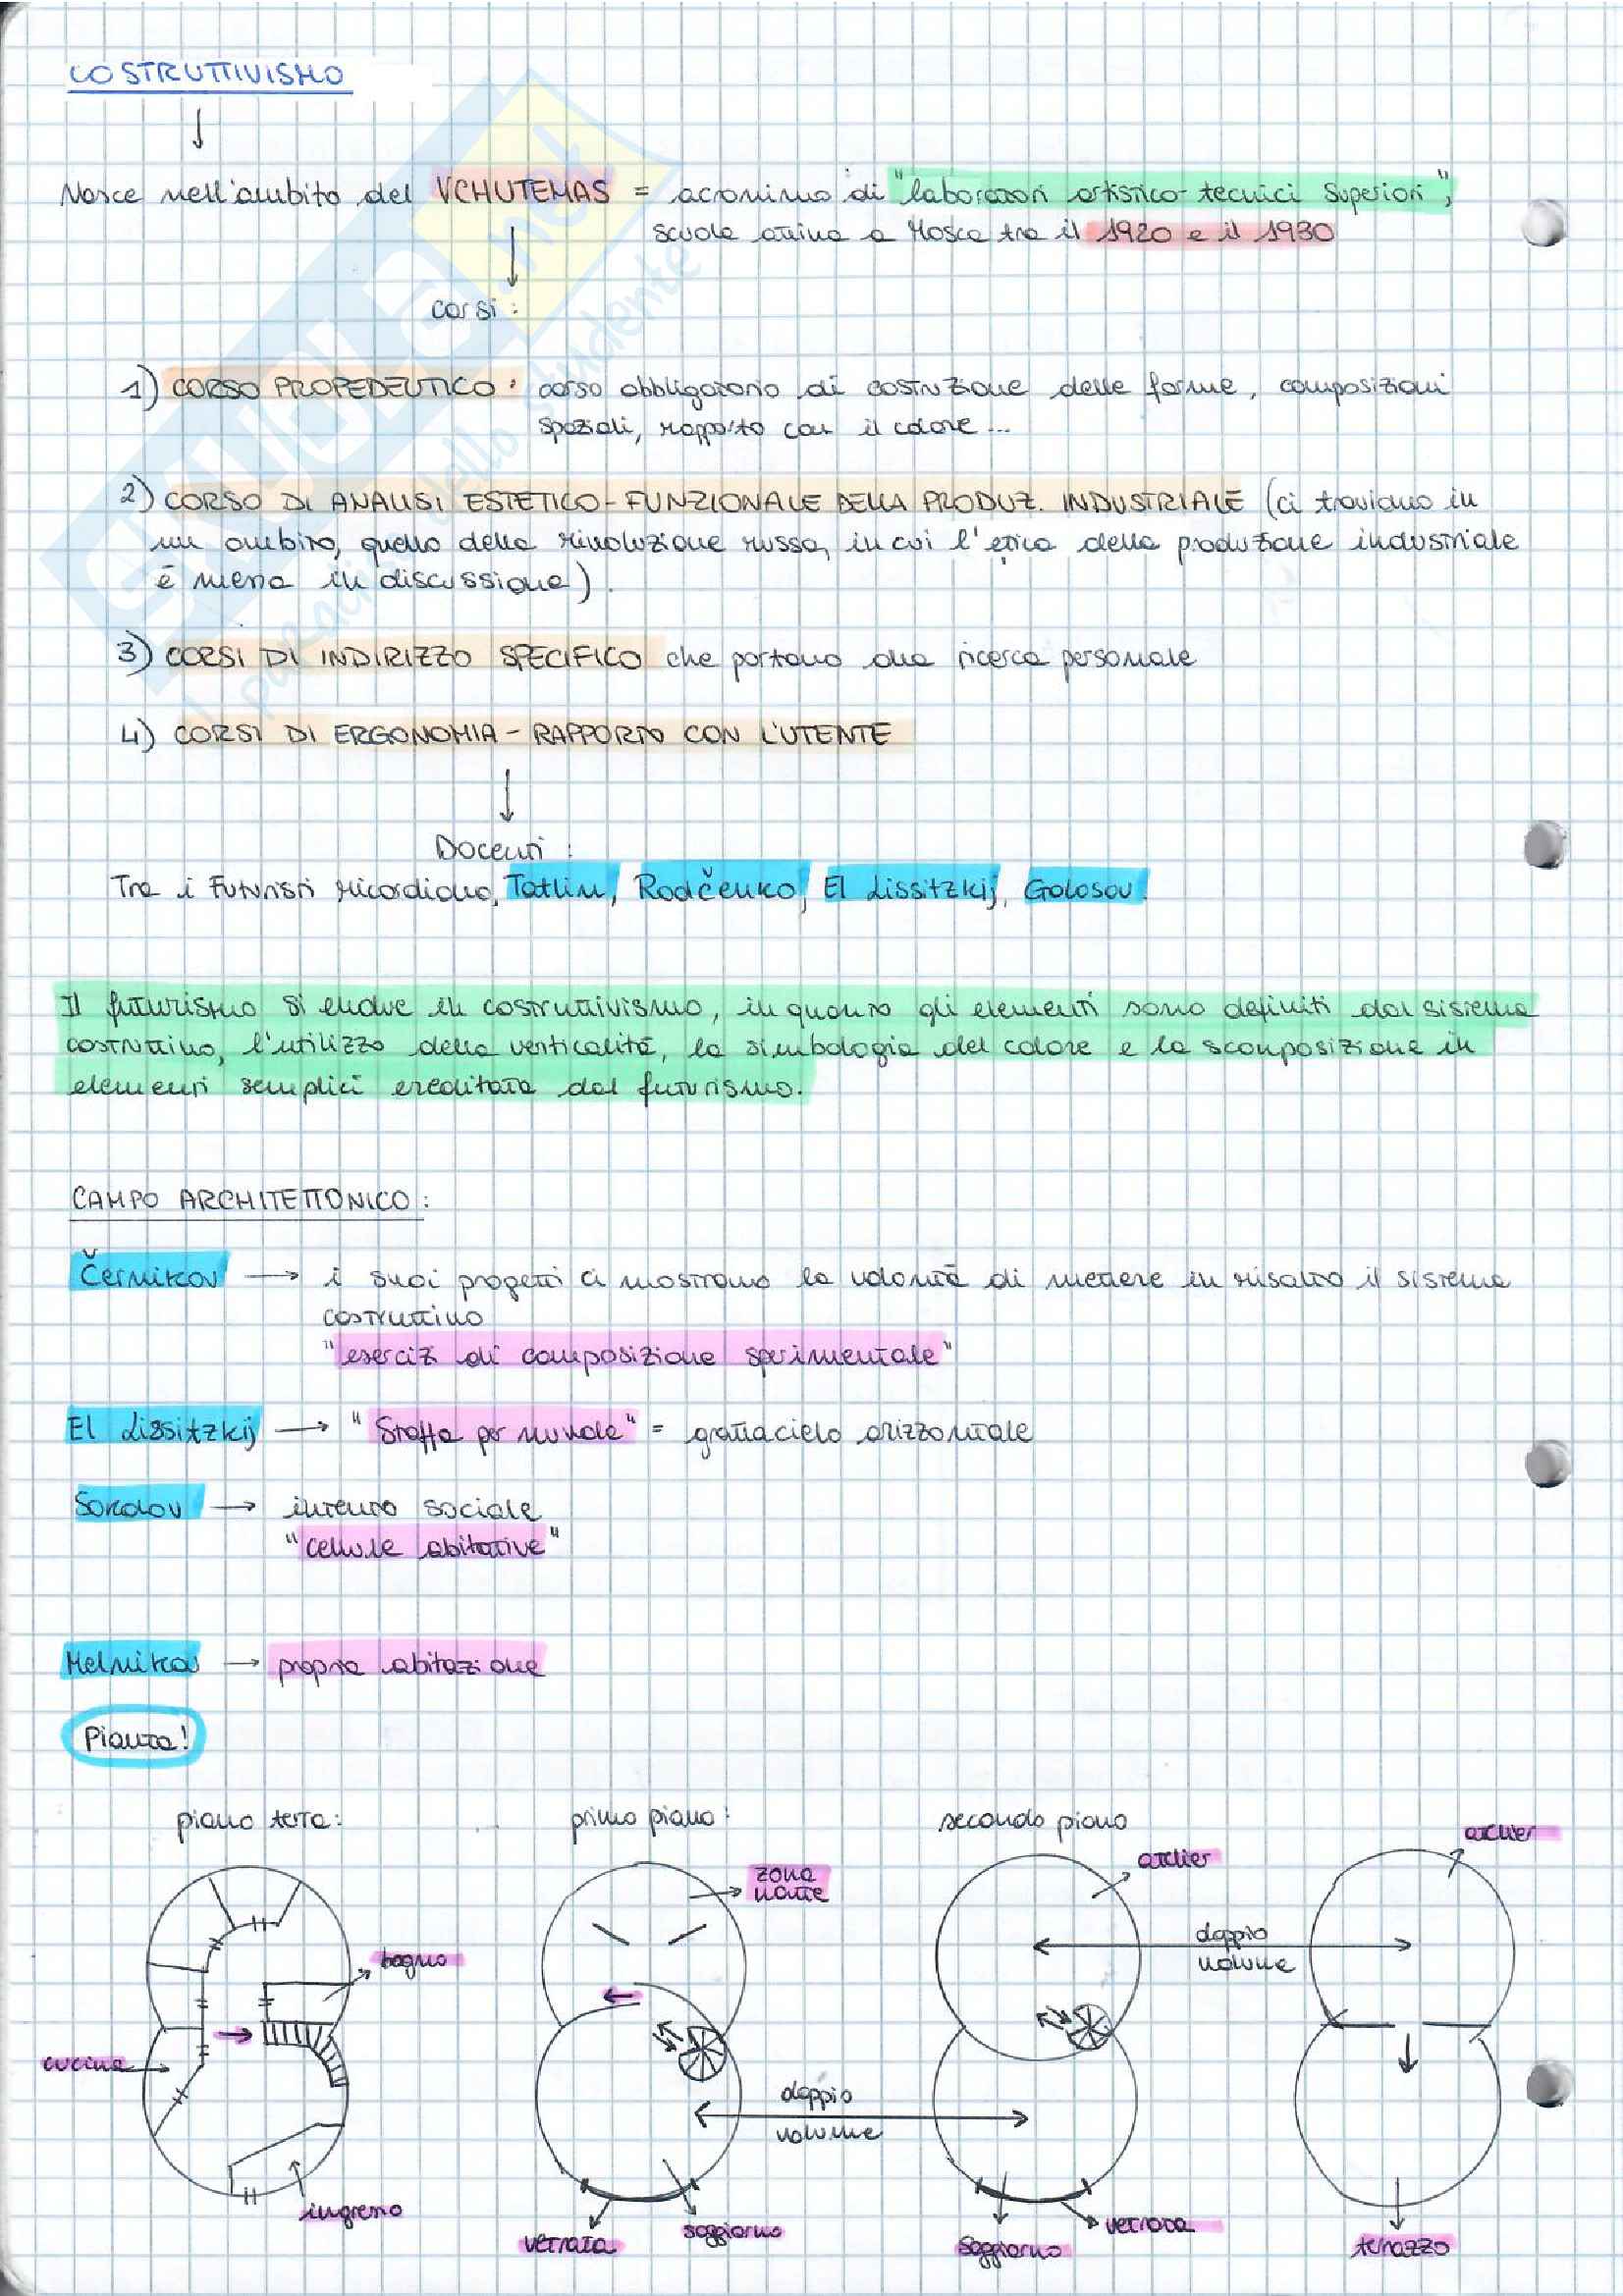 COSTRUTTIVISMO
Nasce nell'ambito del VCHUTEMAS = acronimo di "laboratori artistico-tecnici Superiori",
scuola attiva a Mosca tra il 1920 e il 1930
corsi:
1) CORSO PROPEDEUTICO: corso obbligatorio di costruzione delle forme, composizioni
spaziali, rapporto con il colore...
2) CORSO DI ANALISI ESTETICO-FUNZIONALE DELLA PRODUZ. INDUSTRIALE (ci troviamo in
un ambito, quello della rivoluzione russa, in cui l'etica della produzione industriale
è messa in discussione).
3) CORSI DI INDIRIZZO SPECIFICO che portano alla ricerca personale
4) CORSI DI ERGONOMIA - RAPPORTO CON L'UTENTE
Docenti:
Tra i Futuristi ricordiamo, Tatlin, Rodčenko, El Lissitzkij, Golosov.
Il futurismo si evolve in costruttivismo, in quanto gli elementi sono definiti dal sistema
costruttivo, l'utilizzo della verticalità, la simbologia del colore e la scomposizione in
elementi semplici ereditata dal futurismo.
CAMPO ARCHITETTONICO:
Černikov → i suoi progetti ci mostrano la volontà di mettere in risalto il sistema
costruttivo
"esercizi di composizione sperimentale"
El Lissitzkij → "Staffa per nuvole" = grattacielo orizzontale
Sokolov → intento sociale
"cellule abitative"
Melnikov → propria abitazione
Pianta!
piano terra: primo piano: secondo piano
atelier
zona
notte
atelier
doppio
volume
bagno
cucina
doppio
volume
ingresso
vetrata
soggiorno
soggiorno
vetrata
terrazzo
SKUOLA.net
Il paradiso dello studente